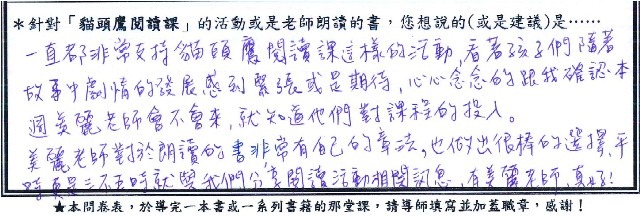 ＊針對「貓頭鷹閱讀課」的活動或是老師朗讀的書，您想說的(或是建議)是⋯⋯
一直都非常支持貓頭鷹閱讀課這樣的活動，看著孩子們隨著
故事中劇情的發展感到緊張或是期待，心心念念的跟我確認本
週美麗老師會不會來，就知道他們對課程的投入。
美麗老師對於朗讀的書非常有自己的章法，也做出很棒的選擇，平
時真是三不五時就與我們分享閱讀活動相關訊息，有美麗老師，真好！
★本問卷表，於導完一本書或一系列書籍的那堂課，請導師填寫並加蓋職章，感謝！